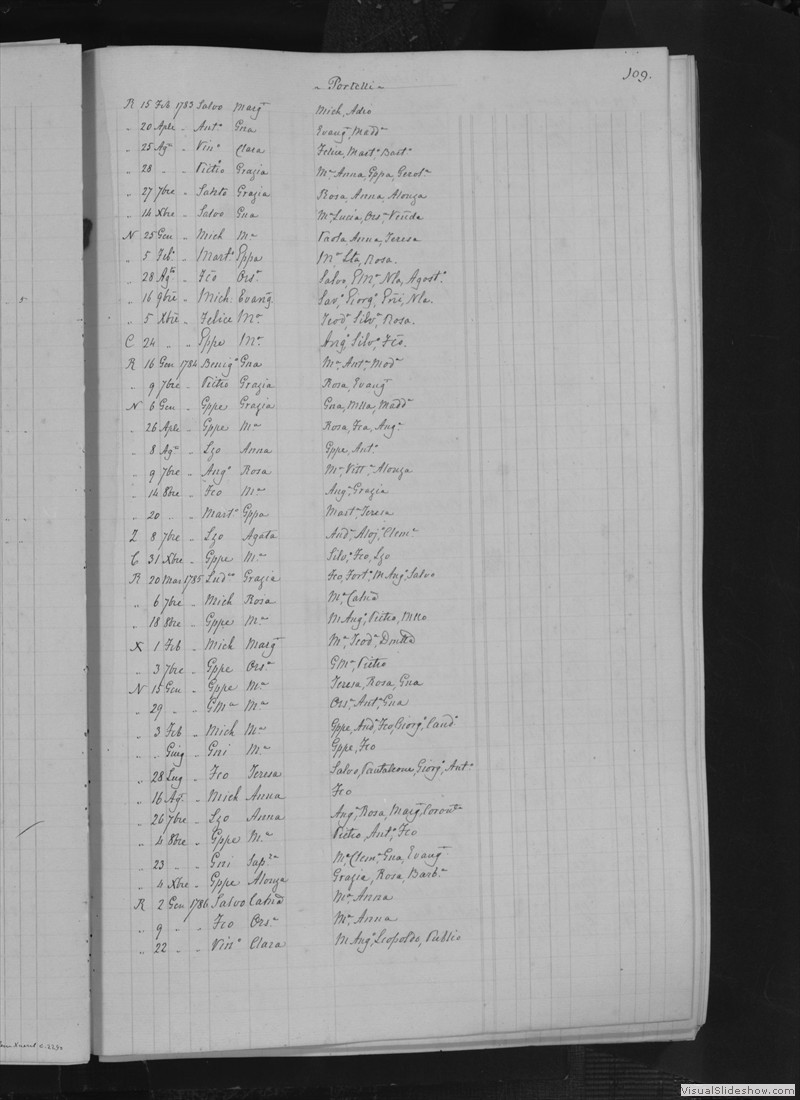 109.
~ Portelli ~
R 15 Feb 1783 Salvo Marg.ta Mich, Adeo
" 20 Aple " Ant.o Gna Evang.ta, Madd.a
" 25 Ag.o " Vin.o Clara Felice, Mart.o Bart.o
" 28 " " Pietro Grazia M.a Anna, Gppa, Gerol.a
" 27 7bre " Santo Grazia Rosa, Anna, Alonza
" 14 Xbre " Salvo Gna M.a Lucia, Ors.a
N 25 Gen " Mich M.a Paola, Anna, Teresa
" 5 Feb.o " Mart.o Gppa M.a Sta, Rosa.
" 28 Ag.to " Fco Ors.a Salvo, GM.a, Nla, Agost.o
" 16 9bre " Mich. Evang.ta Sav.o Giorg.o Gni, Nla.
" 5 Xbre " Felice M.a Teod.a Silv.a Rosa.
C 24 " " Gppe M.a Ang.o Silv.o Fco.
R 16 Gen 1784 Benig.o Gna M.a Ant.a Mod.a
" 9 7bre " Pietro Grazia Rosa, Evang.ta
N 6 Gen " Gppe Grazia Gna, Mlla, Madd.a
" 26 Aple " Gppe M.a Rosa, Fca, Ang.a
" 8 Ag.o " Lzo Anna Gppe, Ant.o
" 9 7bre " Ang.o Rosa M.a Vitt.a Alonza
" 14 8bre " Fco M.a Ang.a Grazia
" 20 " " Mart.o Gppa Mart.a Teresa
Z 8 7bre " Lzo Agata And.a Aloj.o Clem.a
C 31 Xbre " Gppe M.a Silv.o Fco, Lzo
R 20 Mar 1785 Lud.co Grazia Fco, Fort.o M Ang.o Salvo
" 6 7bre " Mich Rosa M.a Catna
" 18 8bre " Gppe M.a M Ang.o Pietro,
X 1 Feb " Mich Marg.ta M.a Teod.a
" 3 7bre " Gppe Ors.a GM.a, Pietro
N 15 Gen " Gppe M.a Teresa, Rosa, Gna
" 29 " " GM.a M.a Ors.a Ant.a Gna
" 3 Feb " Mich M.a Gppe, And.a Fco, Giorg.o Cand.o
" " Giug " Gni M.a Gppe, Fco
" 28 Lug " Fco Teresa Salvo, Pantaleone, Giorg.o, Ant.o
" 16 Ag.o " Mich Anna Fco
" 26 7bre " Lzo Anna Ang.a Rosa, Marg.ta
" 4 8bre " Gppe M.a Pietro, Ant.o Fco
" 23 " " Gni Sap.za M.a Clem.a Gna, Evang.ta
" 4 Xbre " Gppe Alonza Grazia, Rosa, Barb.a
R 2 Gen 1786 Salvo Catna M.a Anna
" 9 " " Fco Ors.a M.a Anna
" 22 " " Vin.o Clara M Ang.o, Leopoldo, Publio
VisualSlideshow.com